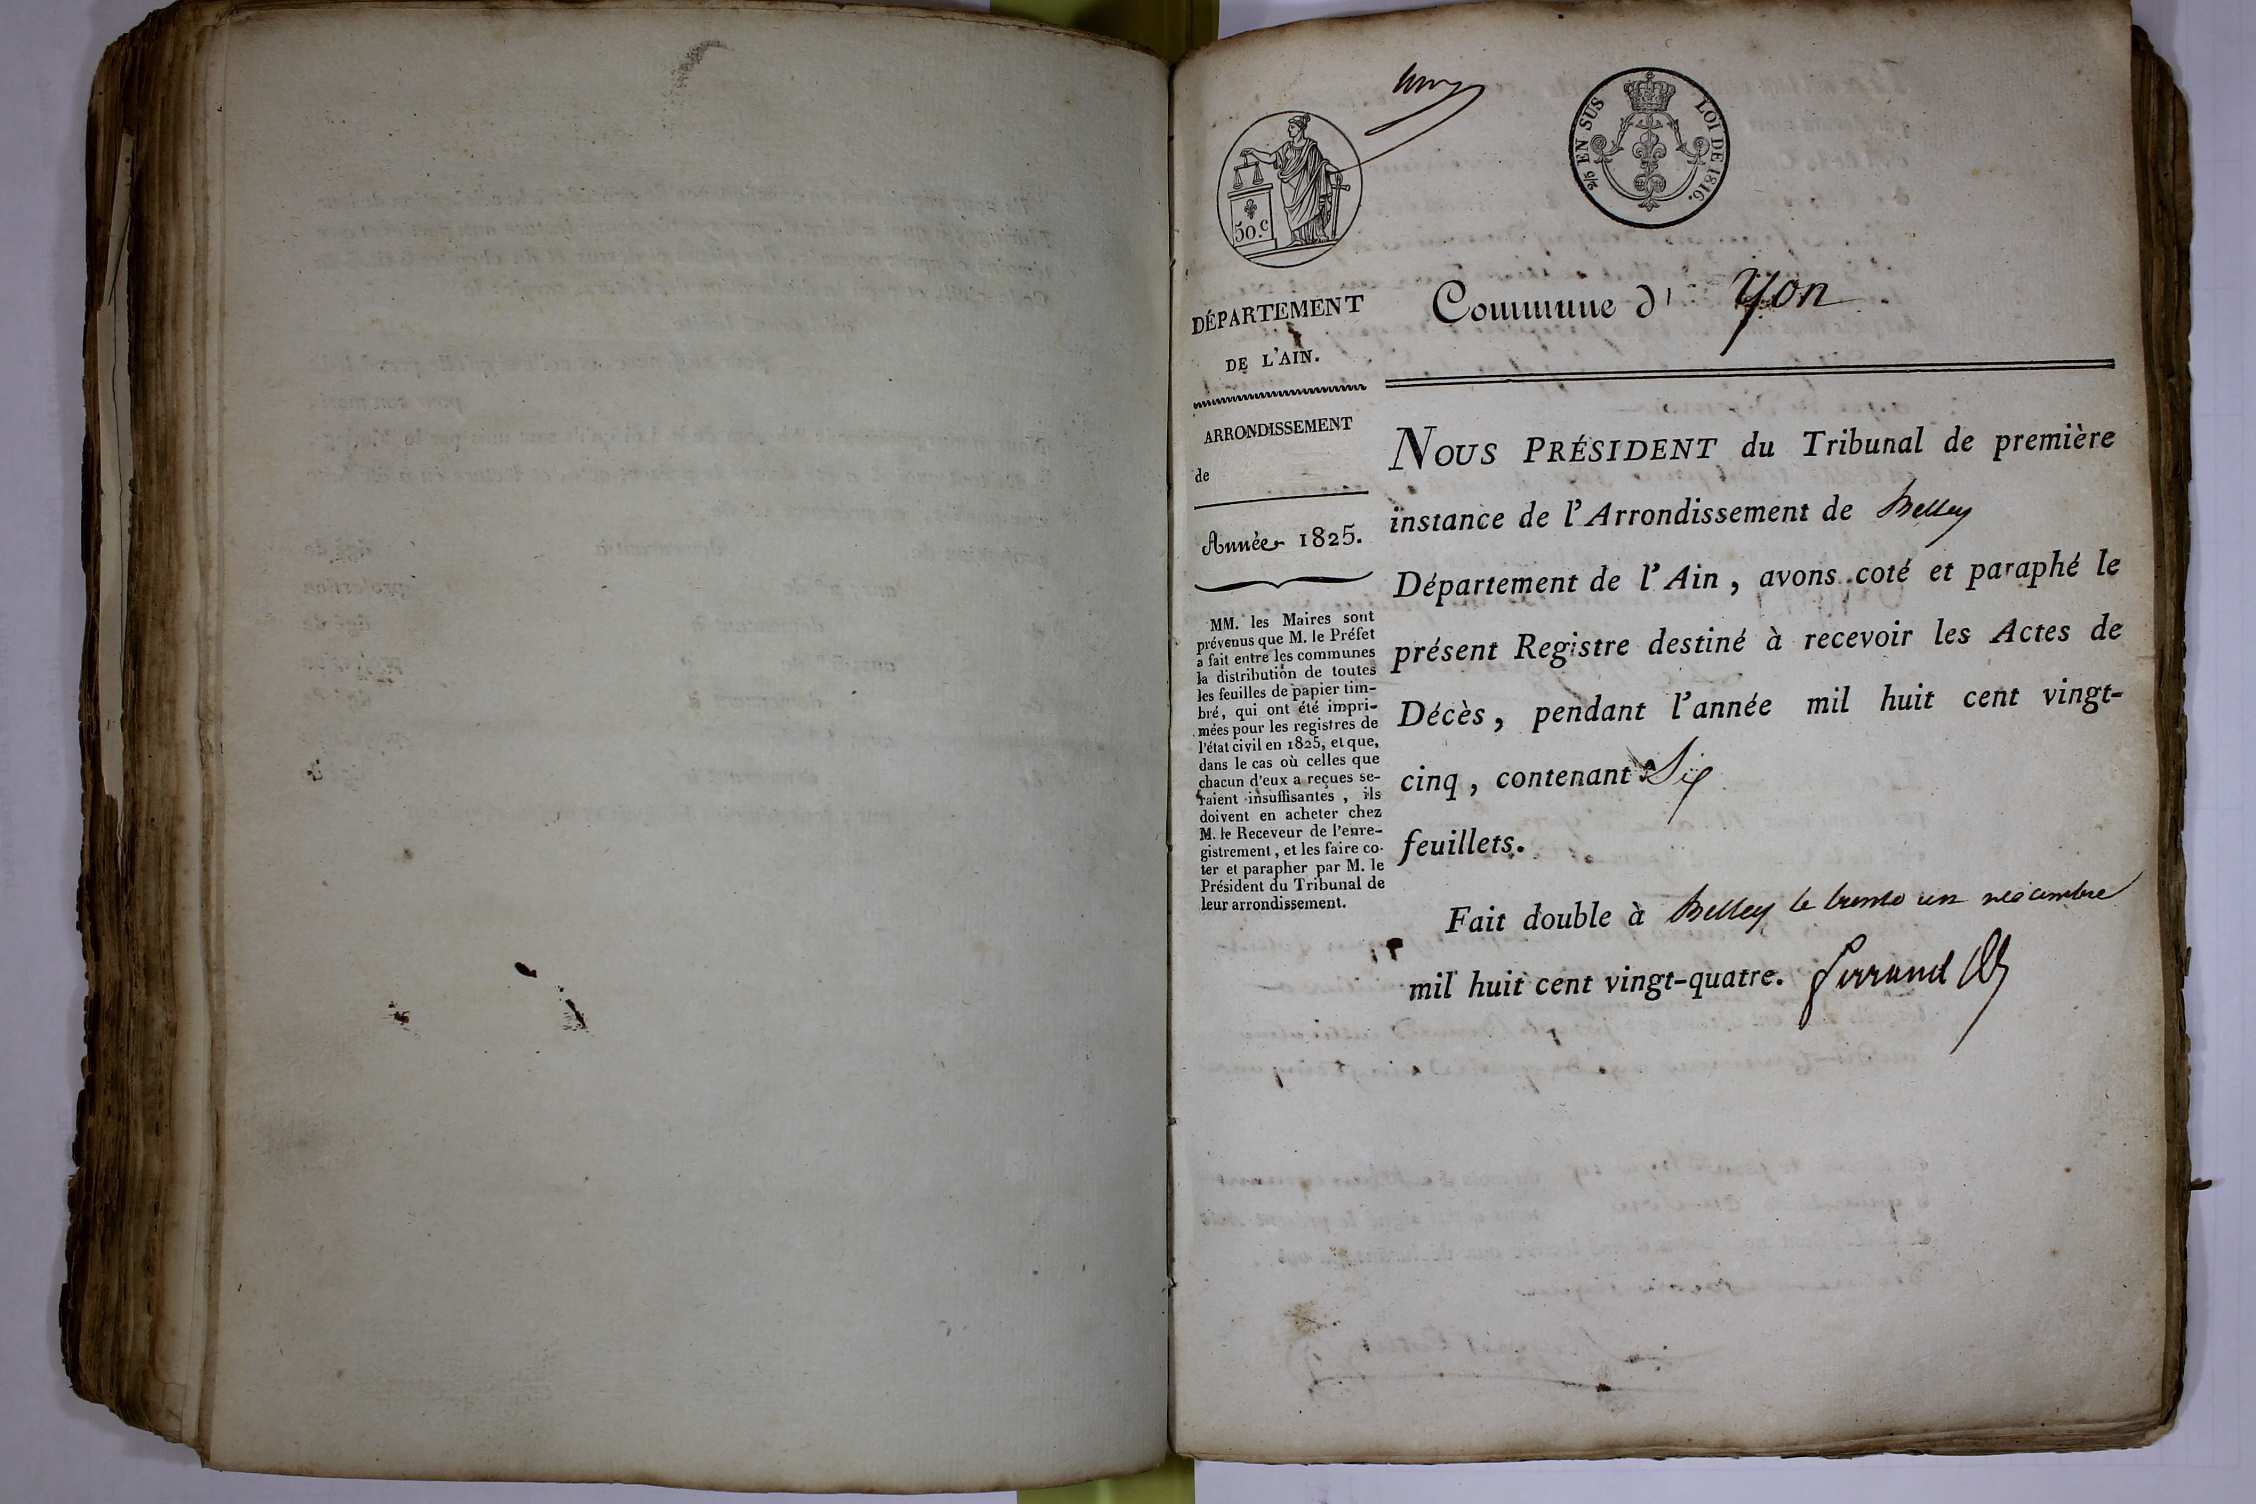 2/5 EN SUS
LOI DE 1816.
50.c
DÉPARTEMENT
DE L'AIN.
ARRONDISSEMENT
de
Année 1825.
MM. les Maires sont
prévenus que M. le Préfet
a fait entre les communes
la distribution de toutes
les feuilles de papier tim-
bré, qui ont été impri-
mées pour les registres de
l'état civil en 1825, et que,
dans le cas où celles que
chacun d'eux a reçues se-
raient insuffisantes, ils
doivent en acheter chez
M. le Receveur de l'enre-
gistrement, et les faire co-
ter et parapher par M. le
Président du Tribunal de
leur arrondissement.
Commune d' Yon
NOUS PRÉSIDENT du Tribunal de première
instance de l'Arrondissement de Belley
Département de l'Ain, avons coté et paraphé le
présent Registre destiné à recevoir les Actes de
Décès, pendant l'année mil huit cent vingt-
cinq, contenant Six
feuillets.
Fait double à Belley le trente un décembre
mil huit cent vingt-quatre. Ferrand